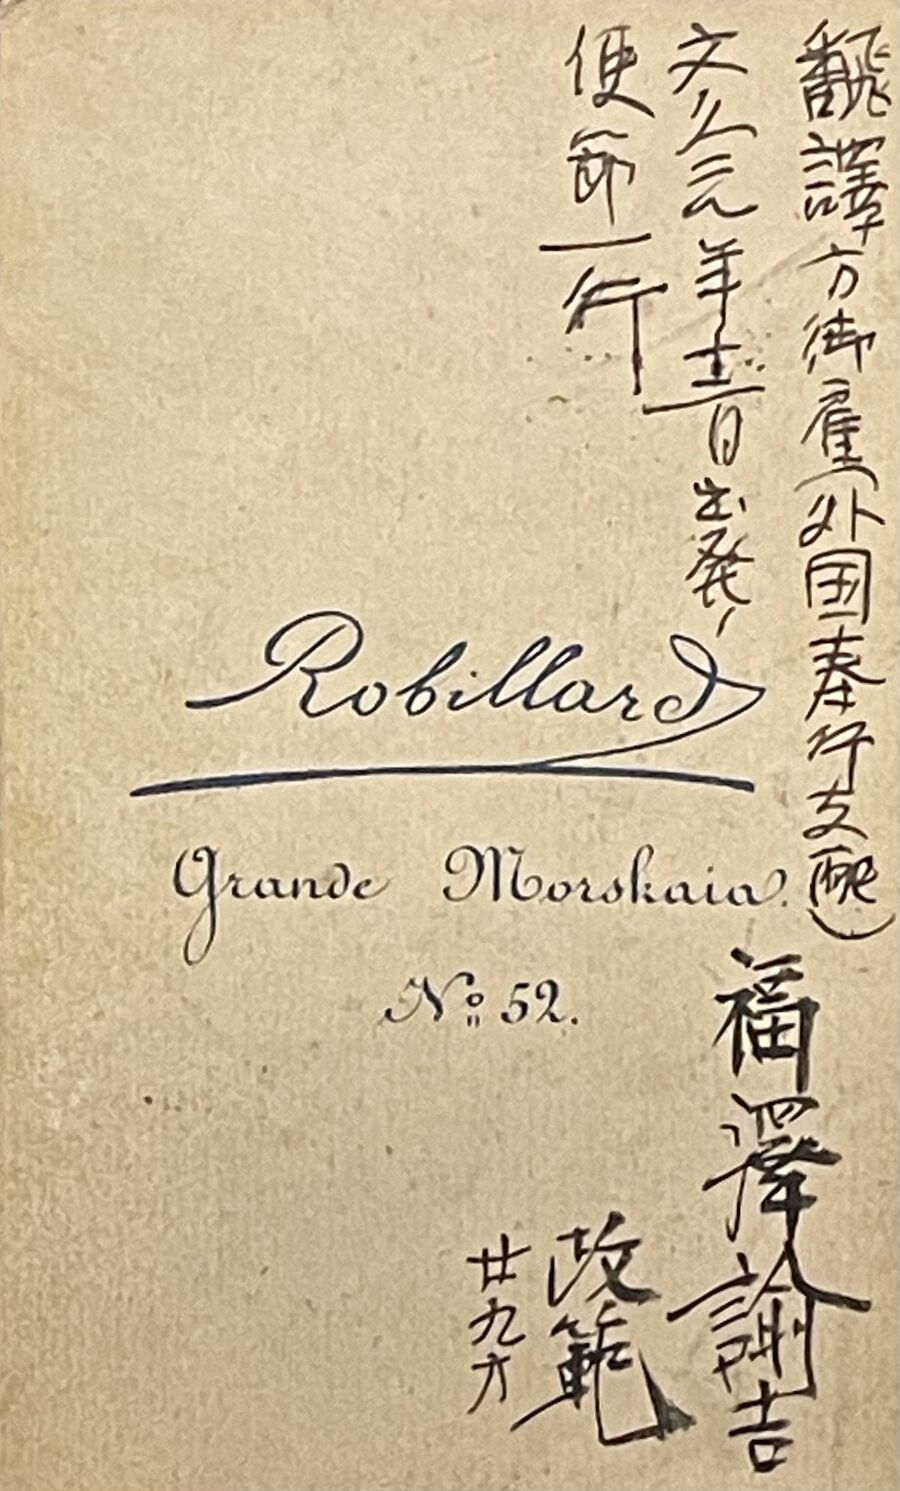 飜譯方御雇(外国奉行支配)
文久元年十二月出発ノ
使節一行
福澤諭吉
政範
廿九才
Robillard
Grande Morskaia.
Nº 52.